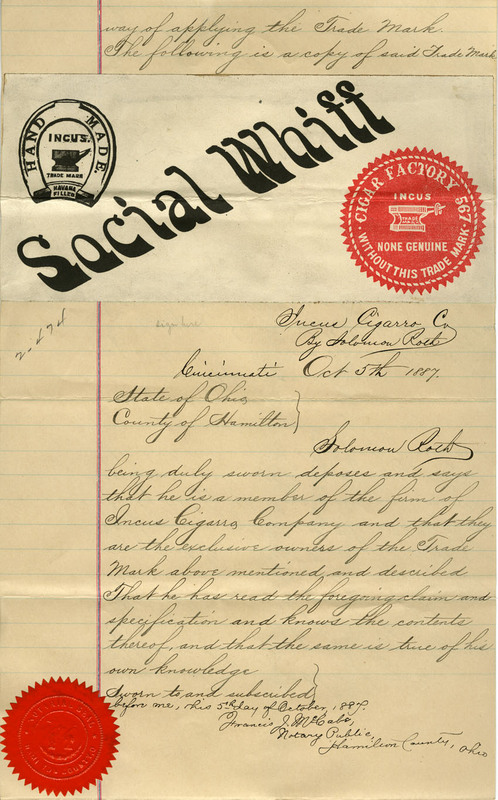 way of applying the Trade Mark.
The following is a copy of said Trade Mark
HAND MADE.
INCUS.
TRADE MARK
HAVANA
FILLED
Social Whiff
CIGAR FACTORY 567
INCUS
TRADE
MARK
NONE GENUINE
WITHOUT THIS TRADE MARK
sign here
Incus Cigarro Co
By Solomon Roth
Cincinnati Oct 5th 1887.
State of Ohio
County of Hamilton
Solomon Roth
being duly sworn deposes and says
that he is a member of the firm of
Incus Cigarro Company and that they
are the exclusive owners of the Trade
Mark above mentioned and described
That he has read the foregoing claim and
specification and knows the contents
thereof, and that the same is true of his
own knowledge
Sworn to and subscribed
before me, this 5th day of October, 1887.
Francis J. McCabe,
Notary Public,
Hamilton County, Ohio